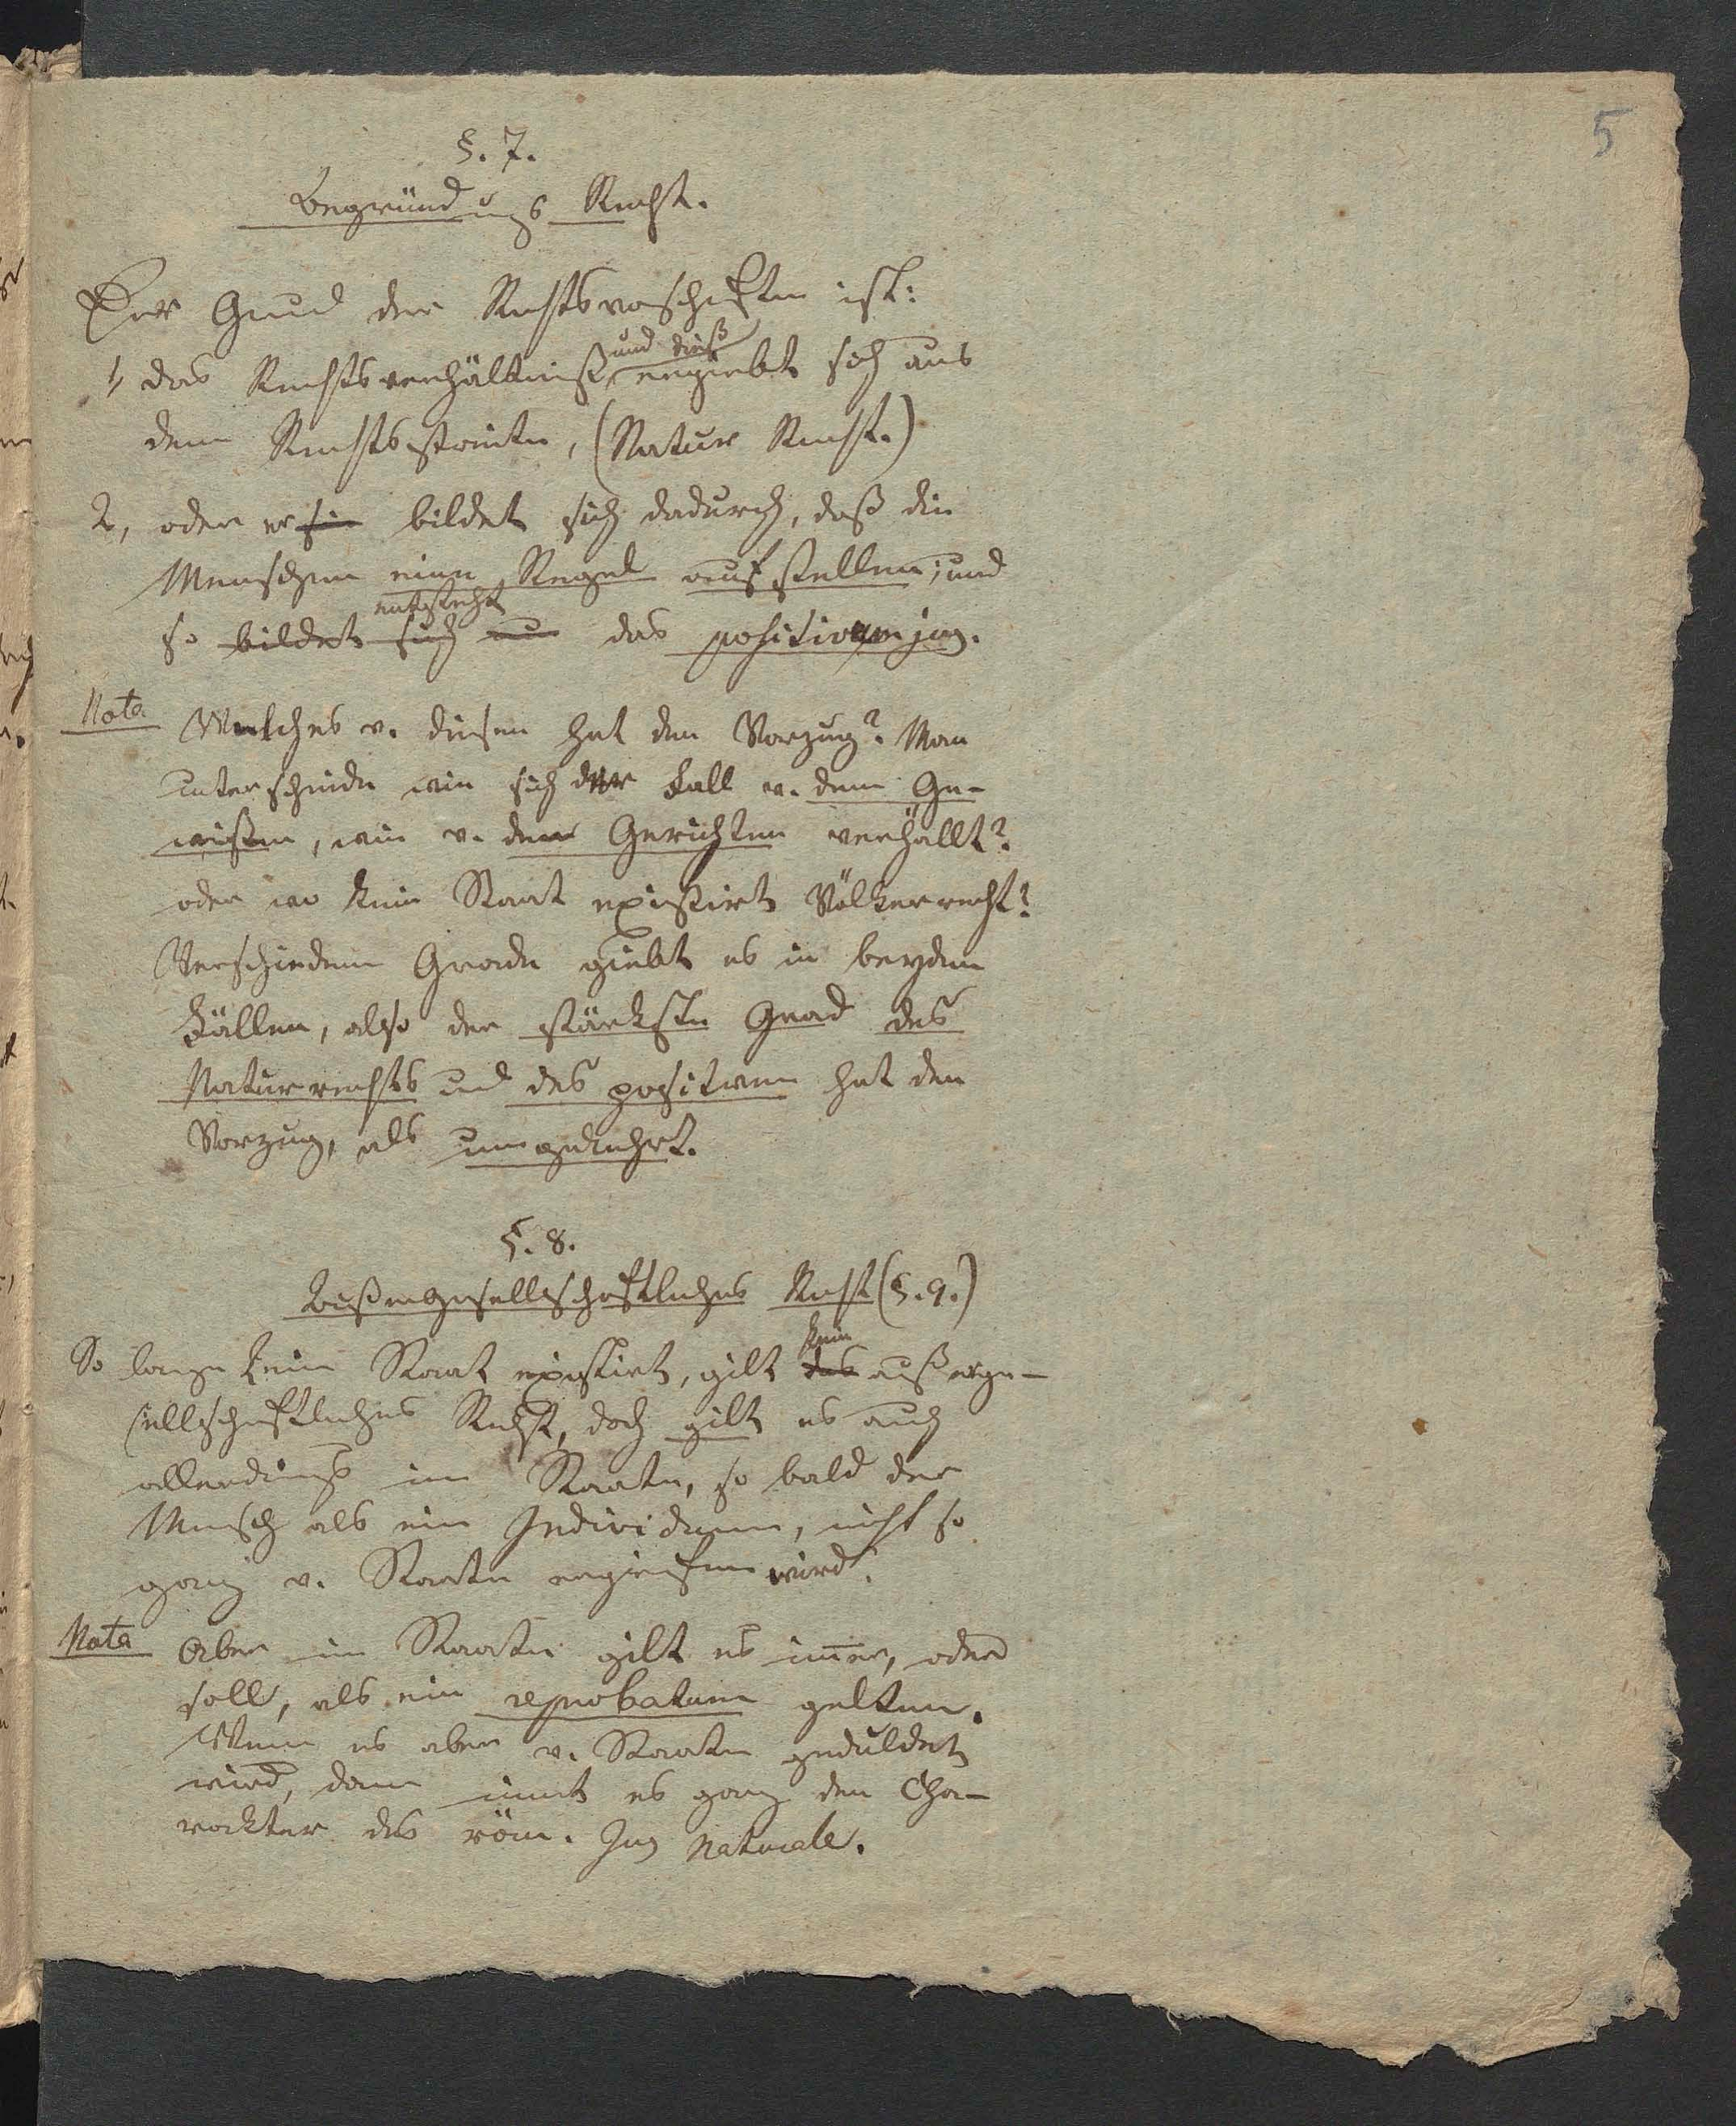 5
§. 7.
Begründungs Recht.
Der Grund der Rechtsvorschriften ist:
1, das Rechtsverhältniß und dieß ergiebt sich aus
dem Rechtsstreite, (Natur Recht.)
2, oder er sie bildet sich dadurch, daß die
Menschen eine Regel aufstellen; und
entsteht
so bildet sich nun das positivum jus.
Nota Welches v. diesen hat den Vorzug? Man
unterscheide wie sich der Fall v. dem Ge-
wissen, wie v. den Gerichten verhällt?
oder wo kein Staat existirt Völkerrecht?
Verschiedene Grade giebt es in beyden
Fällen, also der stärkste Grad des
Naturrechts und des positiven hat den
Vorzug, als umgekehrt.
§. 8.
Außergesellschaftliches Recht (§. 9.)
kein
So lange kein Staat existirt, gilt das außerge-
sellschaftliches Recht, doch gilt es auch
allerdings im Staate, so bald der
Mensch als ein Individuum, nicht so
ganz v. Staate ergriffen wird.
Nota Aber im Staate gilt es immer, oder
soll, als ein reprobatum gelten.
Wenn es aber v. Staate geduldet
wird, dann nimt es ganz den Cha-
rackter des röm. Jus Naturale.